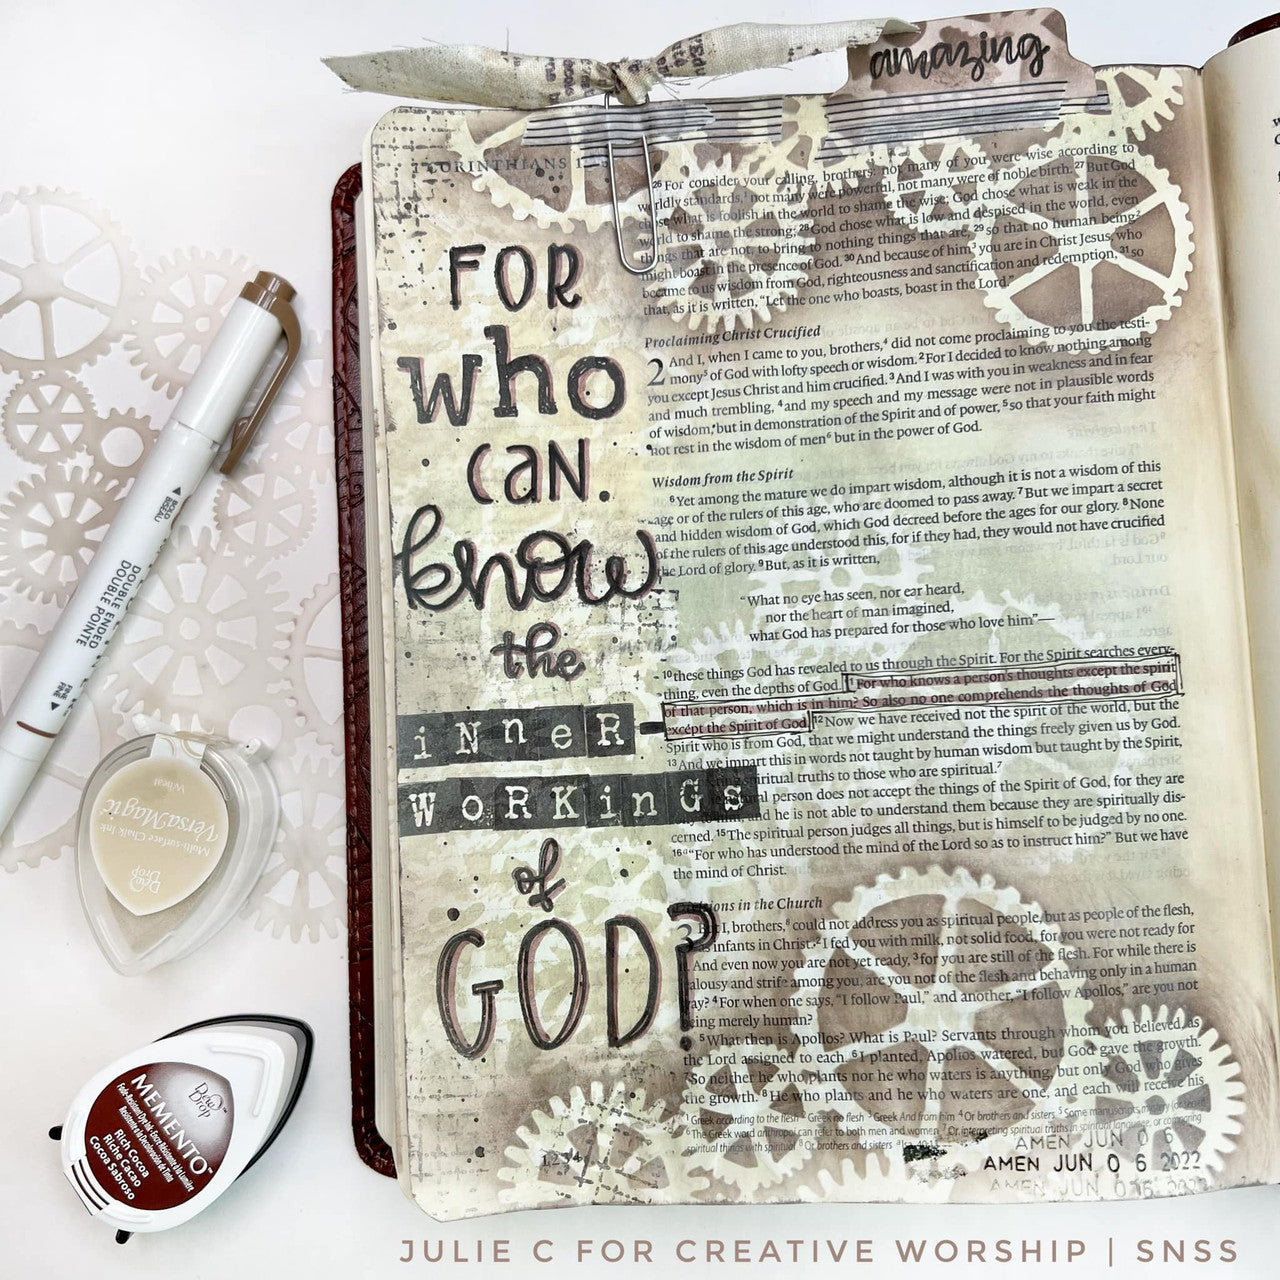 amazing
CORINTHIANS
FOR
who
can
know
the
iNNeR
WoRKinGS
of
GOD?
26 For consider your calling, brothers: not many of you were wise according to
worldly standards, not many were powerful, not many were of noble birth. 27 But God
chose what is foolish in the world to shame the wise; God chose what is weak in the
world to shame the strong; 28 God chose what is low and despised in the world, even
things that are not, to bring to nothing things that are, 29 so that no human being
might boast in the presence of God. 30 And because of him you are in Christ Jesus, who
became to us wisdom from God, righteousness and sanctification and redemption, 31 so
that, as it is written, “Let the one who boasts, boast in the Lord.”
Proclaiming Christ Crucified
2 And I, when I came to you, brothers,4 did not come proclaiming to you the testi-
mony5 of God with lofty speech or wisdom. 2 For I decided to know nothing among
you except Jesus Christ and him crucified. 3 And I was with you in weakness and in fear
and much trembling, 4 and my speech and my message were not in plausible words
of wisdom, but in demonstration of the Spirit and of power, 5 so that your faith might
not rest in the wisdom of men6 but in the power of God.
Wisdom from the Spirit
6 Yet among the mature we do impart wisdom, although it is not a wisdom of this
age or of the rulers of this age, who are doomed to pass away. 7 But we impart a secret
and hidden wisdom of God, which God decreed before the ages for our glory. 8 None
of the rulers of this age understood this, for if they had, they would not have crucified
the Lord of glory. 9 But, as it is written,
“What no eye has seen, nor ear heard,
nor the heart of man imagined,
what God has prepared for those who love him”—
10 these things God has revealed to us through the Spirit. For the Spirit searches every-
thing, even the depths of God. For who knows a person's thoughts except the spirit
of that person, which is in him? So also no one comprehends the thoughts of God
except the Spirit of God. 12 Now we have received not the spirit of the world, but the
Spirit who is from God, that we might understand the things freely given us by God.
13 And we impart this in words not taught by human wisdom but taught by the Spirit,
spiritual truths to those who are spiritual.7
person does not accept the things of the Spirit of God, for they are
him, and he is not able to understand them because they are spiritually dis-
cerned. 15 The spiritual person judges all things, but is himself to be judged by no one.
16 “For who has understood the mind of the Lord so as to instruct him?” But we have
the mind of Christ.
Divisions in the Church
3 But I, brothers,8 could not address you as spiritual people, but as people of the flesh,
as infants in Christ. 2 I fed you with milk, not solid food, for you were not ready for
it. And even now you are not yet ready, 3 for you are still of the flesh. For while there is
jealousy and strife among you, are you not of the flesh and behaving only in a human
way? 4 For when one says, “I follow Paul,” and another, “I follow Apollos,” are you not
being merely human?
5 What then is Apollos? What is Paul? Servants through whom you believed, as
the Lord assigned to each. 6 I planted, Apollos watered, but God gave the growth.
7 So neither he who plants nor he who waters is anything, but only God who gives
the growth. 8 He who plants and he who waters are one, and each will receive his
1 Greek according to the flesh 2 Greek no flesh 3 Greek And from him 4 Or brothers and sisters 5 Some manuscripts mystery
6 The Greek word anthropoi can refer to both men and women 7 Or interpreting spiritual truths in spiritual language, or comparing
spiritual things with spiritual 8 Or brothers and sisters
AMEN JUN 0 6
AMEN JUN 0 6 2022
AMEN JUN 0 6 2022
BOLD
BISEAU
DOUBLE ENDED
DOUBLE POINTE
FINE
FINE
Wheat
VersaMagic
Multi-surface Chalk Ink
Dew Drop
Dew Drop
MEMENTO™
Fade-Resistant Dye Ink
Rich Cocoa
Riche Cacao
Cocoa Sabroso
JULIE C FOR CREATIVE WORSHIP | SNSS